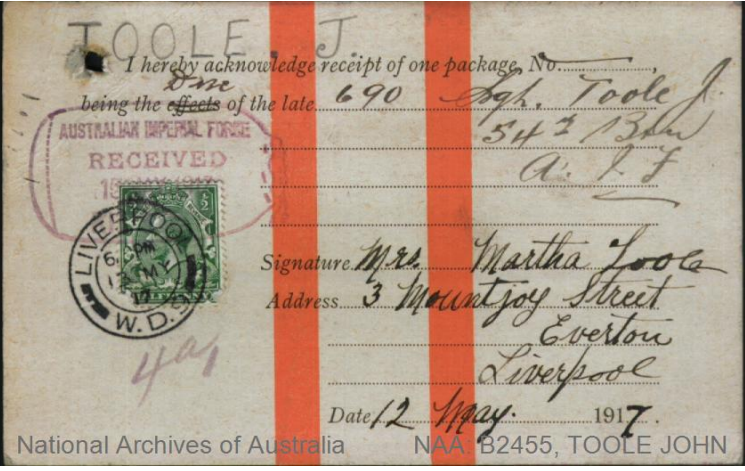 TOOLE, J.
I hereby acknowledge receipt of one package, No.............,
being the effects of the late 690 Sgt. Toole J.
54th Bn
A. I F
AUSTRALIAN IMPERIAL FORCE
RECEIVED
LIVERPOOL
6 PM
12 MY
17
W.D.O
Signature Mrs. Martha Toole
Address 3 Mountjoy Street
Everton
Liverpool
Date 12 May. 1917.
National Archives of Australia NAA: B2455, TOOLE JOHN